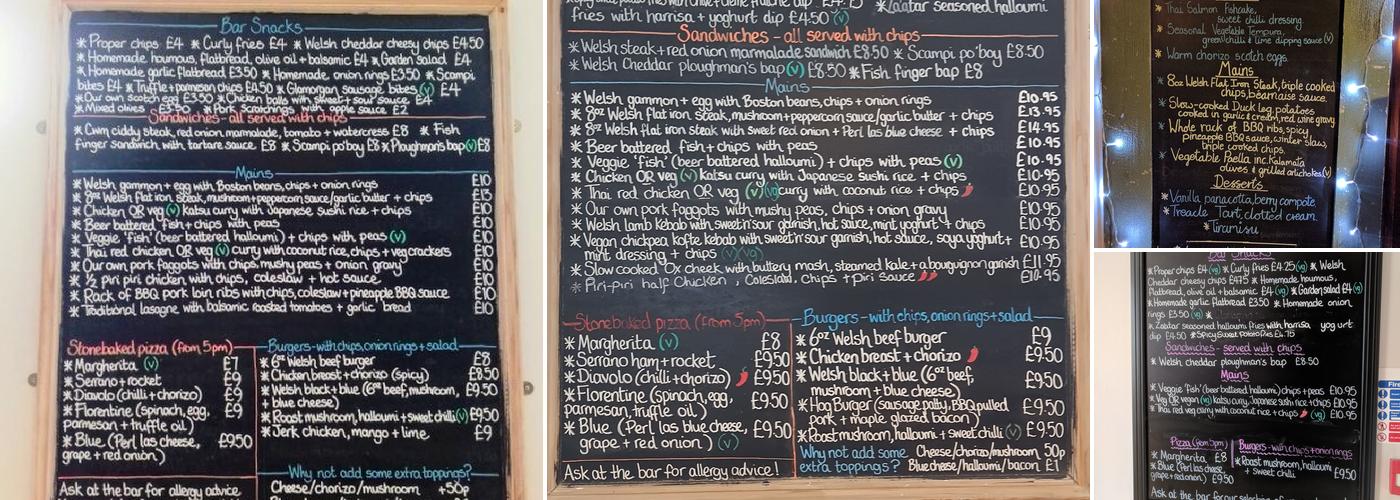 Bar Snacks
* Proper chips £4 * Curly fries £4 * Welsh cheddar cheesy chips £4.50
* Homemade houmous, flatbread, olive oil + balsamic £4 * Garden salad £4
* Homemade garlic flatbread £3.50 * Homemade onion rings £3.50 * Scampi
bites £4 * Truffle + parmesan chips £4.50 * Glamorgan sausage bites (v) £4
* Our own scotch egg £3.50 * Chicken balls with sweet + sour sauce £4
* Mixed olives £3.50 * Pork Scratchings with apple sauce £2
Sandwiches - all served with chips
* Cwm ciddy steak, red onion marmalade, tomato + watercress £8 * Fish
finger sandwich, with tartare sauce £8 * Scampi po'boy £8 * Ploughman's bap (v) £8
Mains
* Welsh gammon + egg with Boston beans, chips + onion rings £10
* 8oz Welsh flat iron steak, mushroom + peppercorn sauce/garlic butter + chips £13
* Chicken OR veg (v) Katsu curry with Japanese sushi rice + chips £10
* Beer battered fish + chips with peas £10
* Veggie 'fish' (beer battered halloumi) + chips with peas (v) £10
* Thai red chicken OR veg (v) curry with coconut rice, chips + veg crackers £10
* Our own pork faggots with chips, mushy peas + onion gravy £10
* ½ piri piri chicken with chips, coleslaw + hot sauce £10
* Rack of BBQ pork loin ribs with chips, coleslaw + pineapple BBQ sauce £10
* Traditional lasagne with balsamic roasted tomatoes + garlic bread £10
Stonebaked pizza (from 5pm)
* Margherita (v) £7
* Serrano + rocket £9
* Diavolo (chilli + chorizo) £9
* Florentine (spinach, egg, £9
parmesan + truffle oil)
* Blue (Perl las cheese, £9.50
grape + red onion)
Ask at the bar for allergy advice
Burgers - with chips, onion rings + salad
* 6oz Welsh beef burger £8
* Chicken breast + chorizo (spicy) £8.50
* Welsh black + blue (6oz beef, mushroom, £9.50
+ blue cheese)
* Roast mushroom, halloumi + sweet chilli (v) £9.50
* Jerk chicken, mango + lime £9
Why not add some extra toppings?
Cheese/chorizo/mushroom +50p
fries with harrisa + yoghurt dip £4.50 (v) * Za'atar seasoned halloumi
Sandwiches - all served with chips
* Welsh steak + red onion marmalade sandwich £8.50 * Scampi po'boy £8.50
* Welsh Cheddar ploughman's bap (v) £8.50 * Fish finger bap £8
Mains
* Welsh gammon + egg with Boston beans, chips + onion rings £10.95
* 8oz Welsh flat iron steak, mushroom + peppercorn sauce/garlic butter + chips £13.95
* 8oz Welsh flat iron steak with sweet red onion + Perl las blue cheese + chips £14.95
* Beer battered fish + chips with peas £10.95
* Veggie 'fish' (beer battered halloumi) + chips with peas (v) £10.95
* Chicken OR veg (v) Katsu curry with Japanese sushi rice + chips £10.95
* Thai red chicken OR veg (v) (vg) curry with coconut rice + chips £10.95
* Our own pork faggots with mushy peas, chips + onion gravy £10.95
* Welsh lamb kebab with sweet'n'sour garnish, hot sauce, mint yoghurt + chips £10.95
* Vegan chickpea kofte kebab with sweet'n'sour garnish, hot sauce, soya yoghurt + £10.95
mint dressing + chips (v) (vg)
* Slow cooked Ox cheek with buttery mash, steamed kale + a bourguignon garnish £11.95
* Piri-piri half Chicken, Coleslaw, chips + piri sauce £10.95
Stonebaked pizza (from 5pm)
* Margherita (v) £8
* Serrano ham + rocket £9.50
* Diavolo (chilli + chorizo) £9.50
* Florentine (spinach, egg, £9.50
parmesan, truffle oil)
* Blue (Perl las blue cheese, £9.50
grape + red onion) (v)
Ask at the bar for allergy advice!
Burgers - with chips, onion rings + salad
* 6oz Welsh beef burger £9
* Chicken breast + chorizo £9.50
* Welsh black + blue (6oz beef, £9.50
mushroom + blue cheese)
* Hog Burger (sausage patty, BBQ pulled £9.50
pork + maple glazed bacon)
* Roast mushroom, halloumi + sweet chilli (v) £9.50
Why not add some extra toppings?
Cheese/chorizo/mushroom 50p
Blue cheese/halloumi/bacon £1
* Thai Salmon Fishcake,
sweet chilli dressing.
* Seasonal Vegetable Tempura,
green chilli & lime dipping sauce (v)
* Warm chorizo scotch eggs.
Mains
* 8oz Welsh Flat Iron Steak, triple cooked
chips, bearnaise sauce.
* Slow-cooked Duck leg, potatoes
cooked in garlic & cream, red wine gravy
* Whole rack of BBQ ribs, spicy
pineapple BBQ sauce, winter slaw,
triple cooked chips.
* Vegetable Paella inc. Kalamata
olives & grilled artichokes (v)
Desserts
* Vanilla panacotta, berry compote
* Treacle Tart, clotted cream
* Tiramisu
Bar Snacks
* Proper chips £4 (vg) * Curly fries £4.25 (vg) * Welsh
Cheddar cheesy chips £4.75 * Homemade houmous,
flatbread, olive oil + balsamic £4 (vg) * Garden salad £4 (vg)
* Homemade garlic flatbread £3.50 * Homemade onion
rings £3.50 (vg) *
* Zaatar seasoned halloumi fries with harrisa yogurt
dip £4.50 * Spicy Sweet potato fries £4.75
Sandwiches - served with chips
* Welsh cheddar ploughman's bap £8.50
Mains
* Veggie 'fish' (beer battered halloumi) chips + peas £10.95
* Veg OR vegan (vg) katsu curry, Japanese sushi rice + chips £10.95
* Thai red veg curry with coconut rice + chips (vg) £10.95
Pizza (from 5pm)
* Margherita £8
* Blue (Perl las cheese,
grape + red onion) £9.50
Burgers - with chips + onion rings
* Roast mushroom, halloumi
+ sweet chilli £9.50
Fire